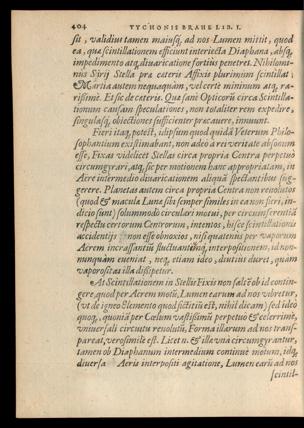 404 TYCHONIS BRAHE LIB. I.
sit, validius tamen maiusq́; ad nos Lumen mittit, quod
ea, quæ scintillationem efficiunt interiecta Diaphana, absq́;
impedimento atq́; divaricatione fortius penetret. Nihilomi-
nus Sirij Stella præ cæteris Affixis plurimùm scintillat,
Martia autem nequaquàm, vel certè minimum atq́; ra-
rissimè. Et sic de cæteris. Quæ sanè Opticorũ circa Scintilla-
tionum causam speculationes, non totaliter rem expedire,
singulasq́; obiectiones sufficienter præcauere, innuunt.
Fieri itaq́; potest, id ipsum quod quidã Veterum Philo-
sophantium existimabant, non adeò à rei veritate absonum
esse, Fixas videlicet Stellas circa propria Centra perpetuò
circumgyrari, atq́; sic per motionem hanc appropriatam, in
Aere intermedio dinaricationem aliquã spectantibus sug-
gerere. Planetas autem circa propria Centra non reuolutos
(quod & macula Lunæ sibi semper similes in ea non fieri, in-
dicio sunt) solummodo circulari motui, per circumferentiã
respectu certorum Centrorum, intentos, hisce scintillationis
accidentijs non esse obnoxios, nisi quatenùs per vaporum
Aerem incrassantiũ fluctuationẽq́; interpositionem, id non-
nunquàm eueniat, neq́; etiam ideo, diutius duret, quàm
vaporositas illa dissipetur.
At Scintillationem in Stellis Fixis non saltẽ ob id contin-
gere, quod per Aerem motũ, Lumen earum ad nos vibretur,
(vt de igneo Elemento quod fictitiũ est, nihil dicam) sed ideò
quoq́;, quoniã per Cœlum vastissimũ perpetuò & celerrimè,
vniuersali circuitu reuoluti, Forma illarum ad nos trans-
pareat, verosimile est. Licet n. & illa vnà circumgyrantur,
tamen ob Diaphanum intermedium continuè motum, idq́;
diuersa Aeris interpositi agitatione, Lumen earũ ad nos
scintil-